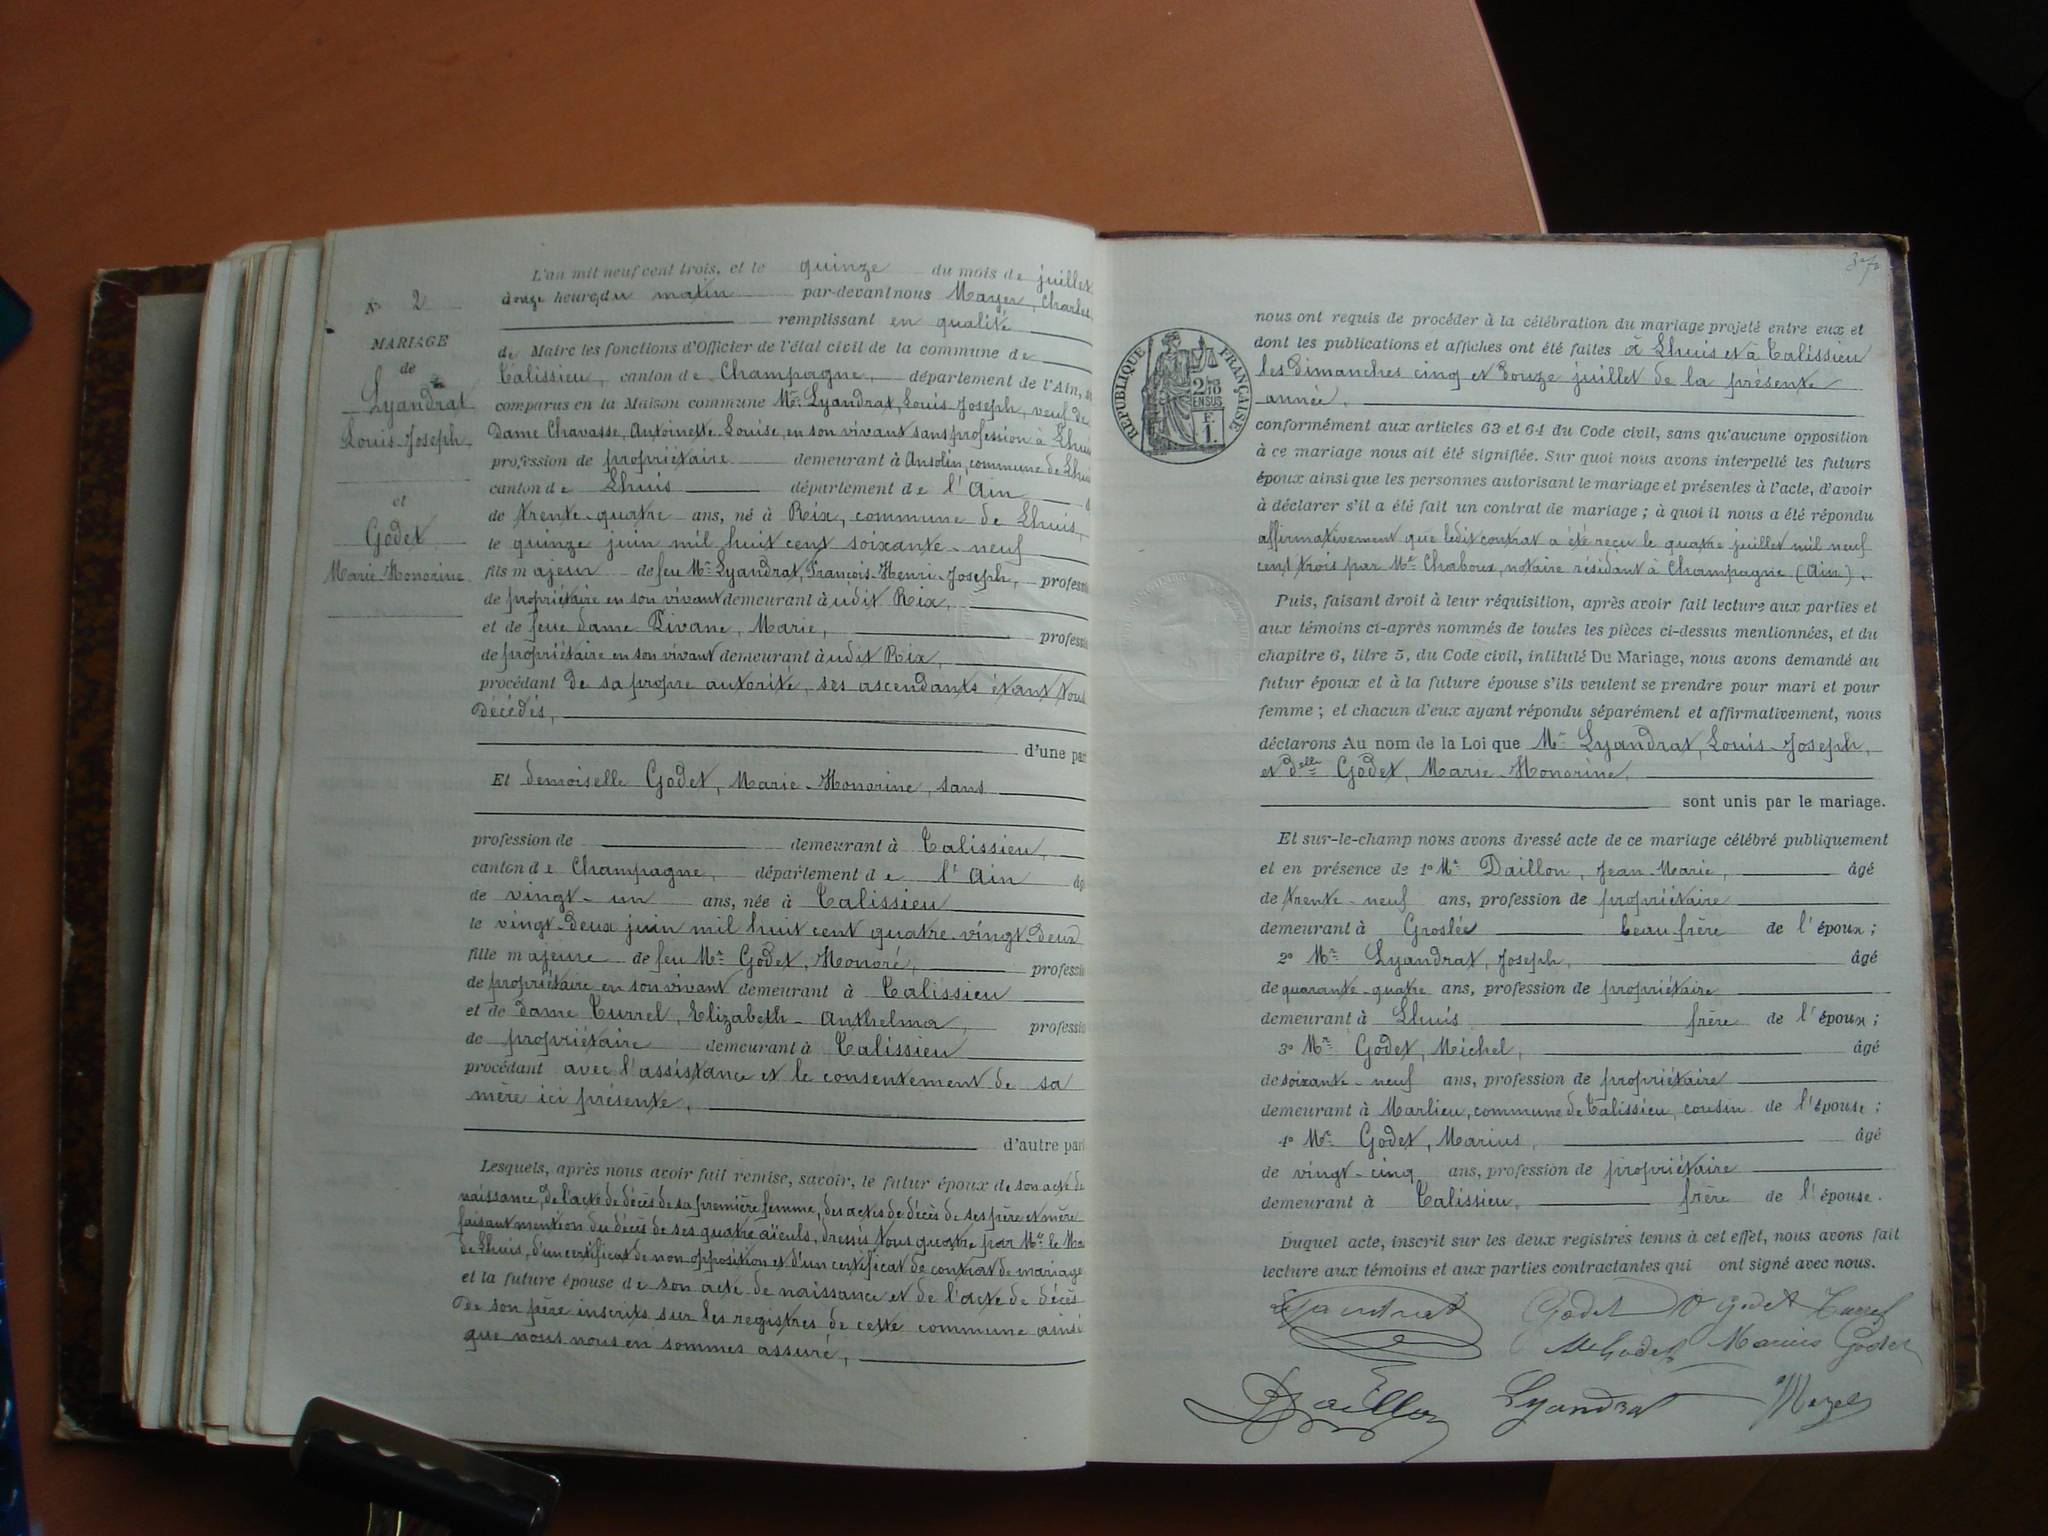 L'an mil neuf cent trois, et le quinze du mois de juillet
à onze heures du matin par-devant nous Mayer, Charles
N° 2
remplissant en qualité
MARIAGE
de
Lyandrat
Louis-Joseph,
et
Godet
Marie-Honorine
de Maire les fonctions d'Officier de l'état civil de la commune de
Talissieu, canton de Champagne, département de l'Ain,
comparus en la Maison commune Mr Lyandrat, Louis-Joseph, veuf de
dame Chavasse, Antoinette-Louise, en son vivant sans profession à Lhuis
profession de propriétaire demeurant à Ansolin, commune de Lhuis
canton de Lhuis département de l'Ain
de trente-quatre ans, né à Rix, commune de Lhuis,
le quinze juin mil huit cent soixante-neuf
fils majeur de feu Mr Lyandrat, François-Henri-Joseph, professi
de propriétaire en son vivant demeurant àudit Rix,
et de feue dame Pivane, Marie, professi
de propriétaire en son vivant demeurant àudit Rix,
procédant de sa propre autorité, ses ascendants étant tous
décédés,
d'une par
Et demoiselle Godet, Marie-Honorine, sans
profession de demeurant à Talissieu,
canton de Champagne, département de l'Ain
de vingt-un ans, née à Talissieu
le vingt-deux juin mil huit cent quatre-vingt-deux
fille majeure de feu Mr Godet, Honoré, professi
de propriétaire en son vivant demeurant à Talissieu
et de dame Turrel, Elizabeth-Anthelma, professi
de propriétaire demeurant à Talissieu
procédant avec l'assistance et le consentement de sa
mère ici présente,
d'autre part
Lesquels, après nous avoir fait remise, savoir, le futur époux de son acte de
naissance, de l'acte de décès de sa première femme, des actes de décès de ses père et mère
faisant mention du décès de ses quatre aïeuls, dressés tous quatre par Mr le Ma
de Lhuis, d'un certificat de non opposition et d'un certificat de contrat de mariage
et la future épouse de son acte de naissance et de l'acte de décès
de son père inscrits sur les registres de cette commune ainsi
que nous nous en sommes assuré,
RÉPUBLIQUE FRANÇAISE
2/10
EN SUS
F.
1.
nous ont requis de procéder à la célébration du mariage projeté entre eux et
dont les publications et affiches ont été faites à Lhuis et à Talissieu
les dimanches cinq et douze juillet de la présente
année,
conformément aux articles 63 et 64 du Code civil, sans qu'aucune opposition
à ce mariage nous ait été signifiée. Sur quoi nous avons interpellé les futurs
époux ainsi que les personnes autorisant le mariage et présentes à l'acte, d'avoir
à déclarer s'il a été fait un contrat de mariage ; à quoi il nous a été répondu
affirmativement que ledit contrat a été reçu le quatre juillet mil neuf
cent trois par Me Chaboux, notaire résidant à Champagne (Ain).
Puis, faisant droit à leur réquisition, après avoir fait lecture aux parties et
aux témoins ci-après nommés de toutes les pièces ci-dessus mentionnées, et du
chapitre 6, titre 5, du Code civil, intitulé Du Mariage, nous avons demandé au
futur époux et à la future épouse s'ils veulent se prendre pour mari et pour
femme ; et chacun d'eux ayant répondu séparément et affirmativement, nous
déclarons Au nom de la Loi que Mr Lyandrat, Louis-Joseph,
et delle Godet, Marie-Honorine,
sont unis par le mariage.
Et sur-le-champ nous avons dressé acte de ce mariage célébré publiquement
et en présence de 1° Mr Daillon, Jean-Marie, âgé
de trente-neuf ans, profession de propriétaire
demeurant à Groslée beau frère de l'époux ;
2° Mr Lyandrat, Joseph, âgé
de quarante-quatre ans, profession de propriétaire
demeurant à Lhuis frère de l'époux ;
3° Mr Godet, Michel, âgé
de soixante-neuf ans, profession de propriétaire
demeurant à Marlieu, commune de Talissieu, cousin de l'épouse ;
4° Mr Godet, Marius, âgé
de vingt-cinq ans, profession de propriétaire
demeurant à Talissieu, frère de l'épouse.
Duquel acte, inscrit sur les deux registres tenus à cet effet, nous avons fait
lecture aux témoins et aux parties contractantes qui ont signé avec nous.
Lyandrat Godet Godet Turrel
Godet Marius Godet
Daillon Lyandrat Mayer